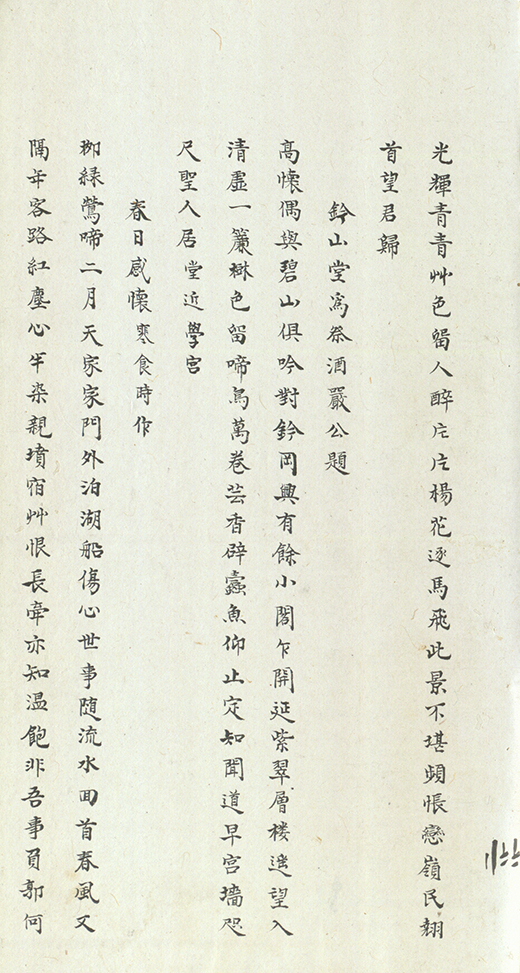 光輝青青艸色留人醉片片楊花逐馬飛此景不堪頻悵戀嶺民翹
首望君歸
鈐山堂爲祭酒嚴公題
高懷偶與碧山俱吟對鈐岡興有餘小閣乍開延紫翠層楼遥望入
清虛一簾林色留啼鳥萬卷芸香辟蠹魚仰止定知聞道早宫墻咫
尺聖人居堂近學宮
春日感懷寒食時作
栁緑鶯啼二月天家家門外泊湖船傷心世事随流水囬首春風又
隔年客路紅塵心半染親墳宿艸恨長牽亦知温飽非吾事負郭何